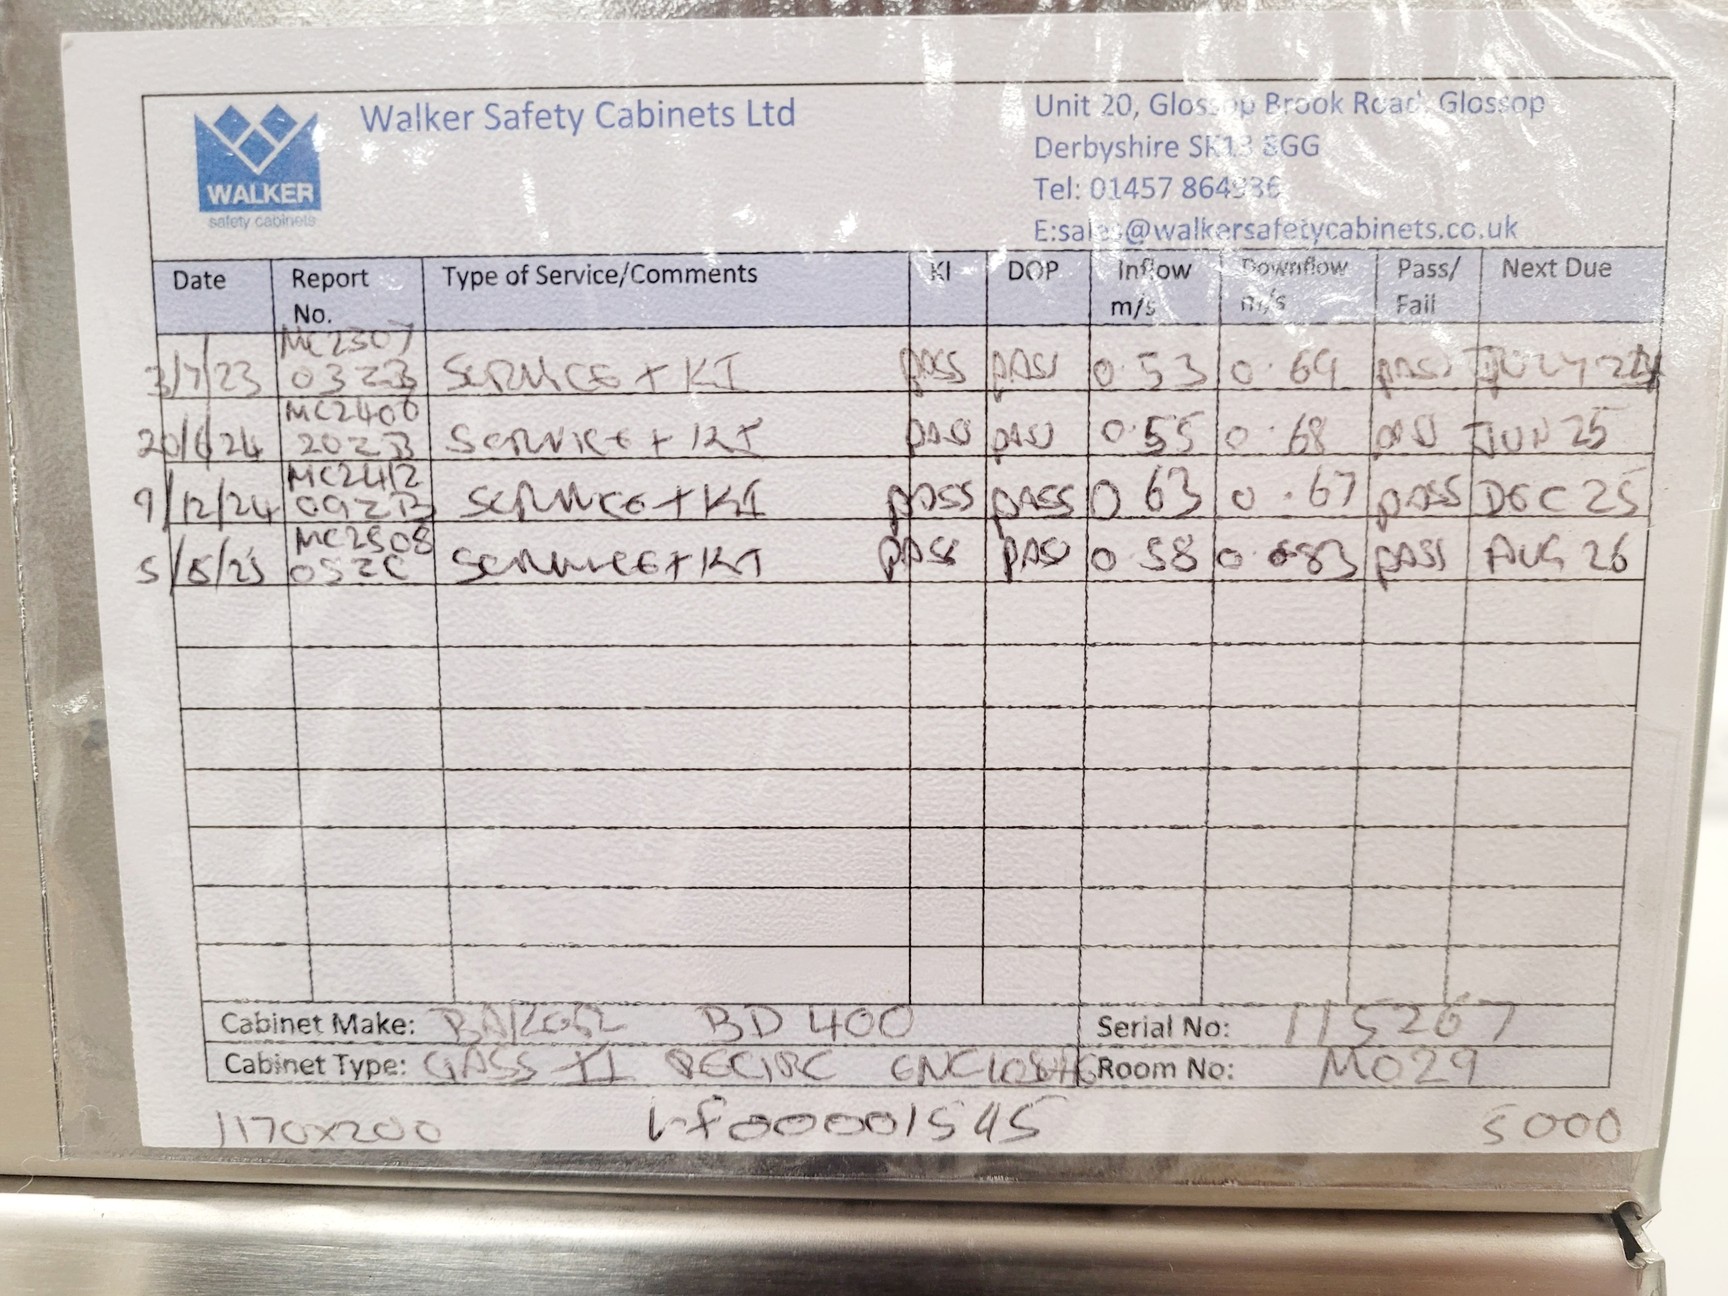 Walker Safety Cabinets Ltd
WALKER
safety cabinets
Unit 20, Glossop Brook Road, Glossop
Derbyshire SK13 8GG
Tel: 01457 864936
E:sales@walkersafetycabinets.co.uk
Date Report No. Type of Service/Comments KI DOP Inflow m/s Downflow m/s Pass/Fail Next Due
3/7/23 MC2307 032B SERVICE + KI PASS PASS 0.53 0.69 PASS JULY 24
20/6/24 MC2406 202B SERVICE + KI PASS PASS 0.55 0.68 PASS JUN 25
9/12/24 MC2412 092B SERVICE + KI PASS PASS 0.63 0.67 PASS DEC 25
5/8/25 MC2508 052C SERVICE + KI PASS PASS 0.58 0.683 PASS AUG 26
Cabinet Make: BD 400 Serial No: 115267
Cabinet Type: CLASS II RECIRC Room No: M029
1170x200 00001545 5000